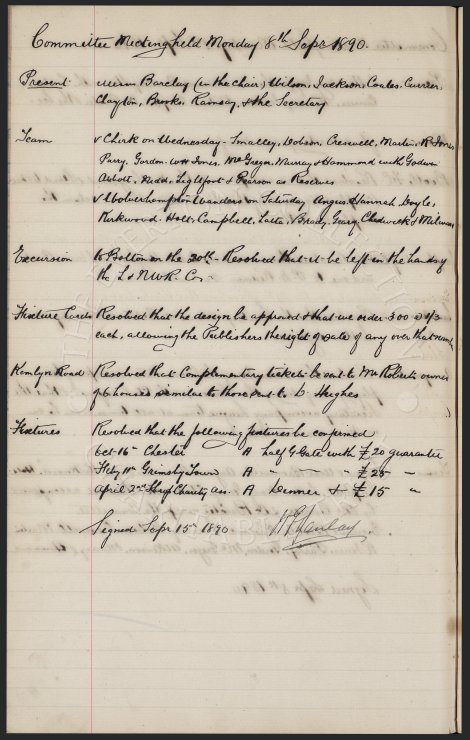 Committee Meeting held Monday 8th Sepr 1890.
Present Messrs Barclay (in the Chair) Wilson, Jackson, Coates, Currier,
Clayton, Brooks, Ramsay, & the Secretary
Team v Chirk on Wednesday - Smalley, Dobson, Creswell, Martin, R Jones
Parry, Gordon, Wm Jones, McGregor, Murray & Hammond with Godwin
Abbott, Kidd, Lightfoot & Pearson as Reserves
v Wolverhampton Wanderers on Saturday Angus, Hannah, Doyle,
Kirkwood, Holt, Campbell, Latta, Brady, Geary, Chadwick & Milward
Excursion to Bolton on the 20th - Resolved that it be left in the hands of
the L & NWR. Co.
Fixture Cards Resolved that the design be approved & that we order 300 @ 1/3
each, allowing the Publishers the right of sale of any over that number
Kemlyn Road Resolved that Complimentary tickets be sent to Mr Roberts owner
of 6 houses similar to those sent to Hughes
Fixtures Resolved that the following fixtures be confirmed
Oct 16th Chester A half G Gate with £20 guarantee
Feby 11th Grimsby Town A " " £25 "
April 2nd Charity ass. A Dinner & £15 "
Signed Sepr 15th 1890